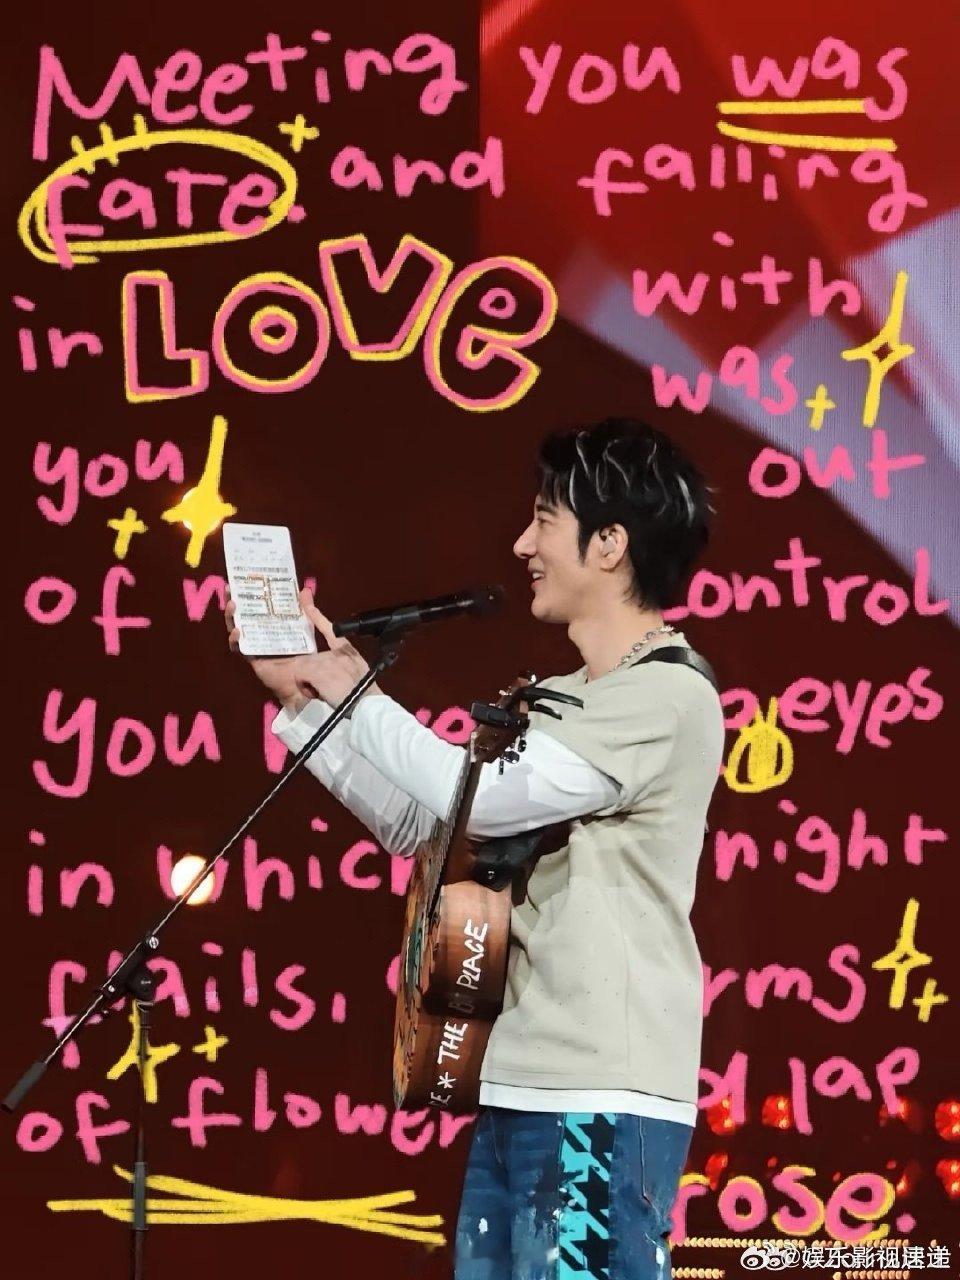 Meeting you was
fate. and falling
in LOVE with
you was
out
of my control
you eyes
in which night
flails, rms
of flower lap
rose.
THE PLACE
@娱乐影视速递